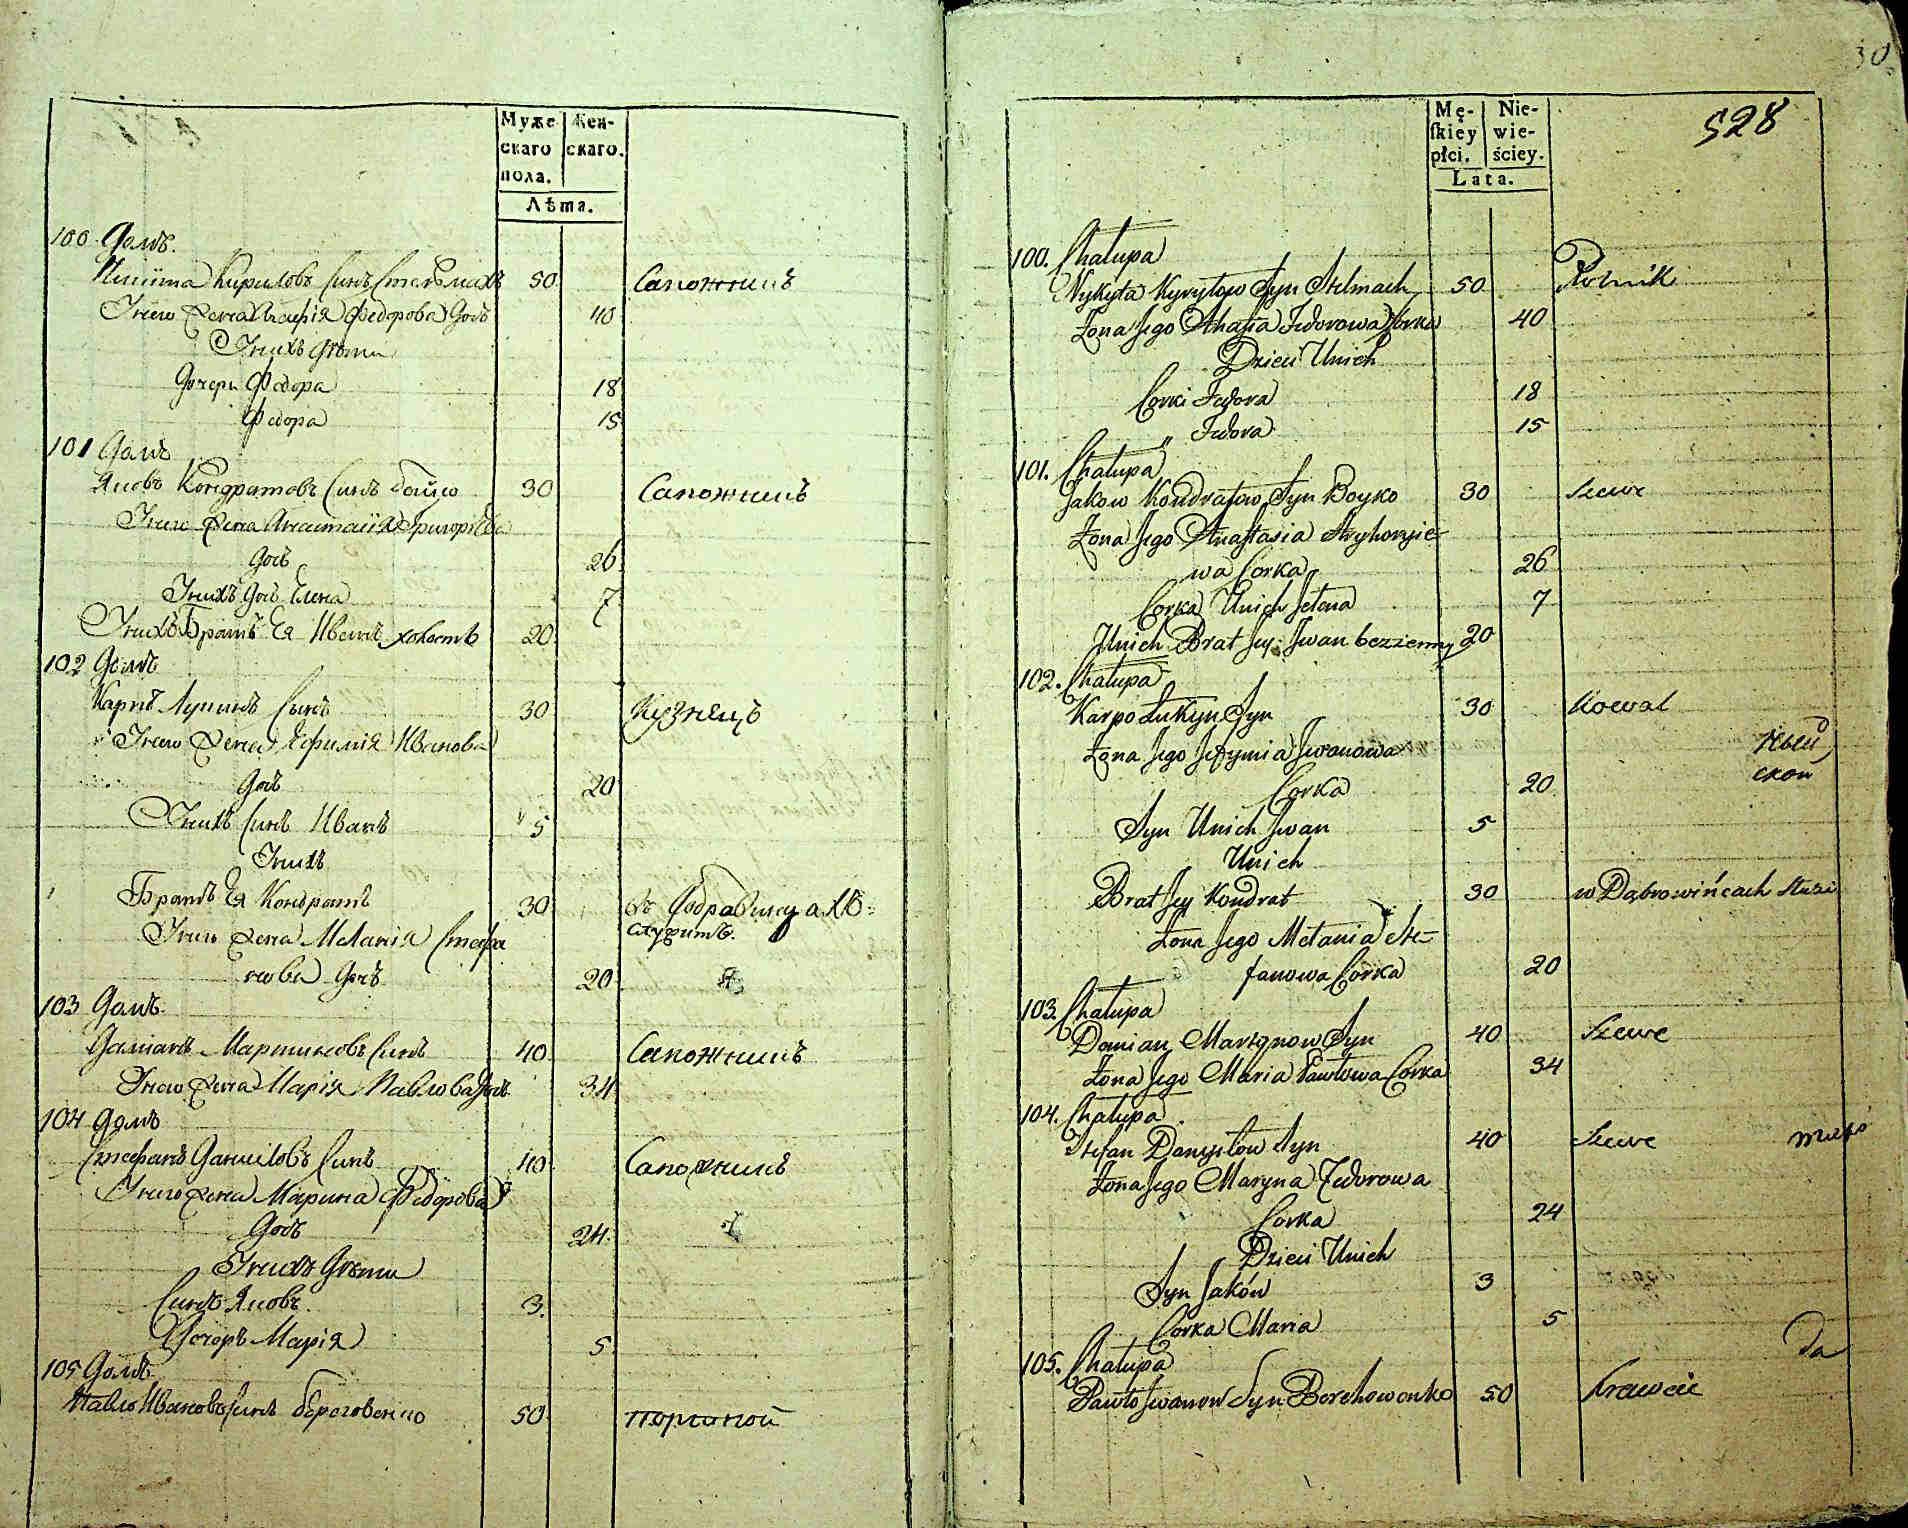 Муже Жен-
скаго скаго.
пола.
Лѣта.
100 Домъ.
Никита Кириловъ Синъ Стельмахъ 50 Сапожникъ
Унего Жена Федорова Дочь 40
Унихъ Дѣти
Дочери Федора 18
Федора 15
101 Домъ
Яковъ Кондратовъ Синъ Бойко 30 Сапожникъ
Унего Жена Анастасія Григорієва
Дочь 26
Унихъ Дочь Елена 7
Унихъ Братъ Ея Иванъ холостъ 20
102 Домъ
Карпъ Лукинъ Сынъ 30 Кузнецъ
Унего Жена Евфимія Иванова
Дочь 20
Унихъ Синъ Иванъ 5
Унихъ
Братъ Ея Кондратъ 30
служитъ.
Унего Жена Меланія Стефа
нова Дочь 20
103 Домъ.
Даміанъ Мартиновъ Синъ 40 Сапожникъ
Унего Жена Марія Павлова Дочь 34
104 Домъ
Стефанъ Даниловъ Синъ 40 Сапожникъ
Унего Жена Марина Федорова
Дочь 24
Унихъ Дѣти
Синъ Яковъ. 3.
Дочеръ Марія 5
105 Домъ.
Павло Ивановъ Синъ Береговенко 50 портной
30
528
Mę- Nie-
skiey wie-
płci. ściey.
Lata.
100. Chałupa
Nykyta Kyryłow Syn Stelmach 50 Rolnik
Żona Jego Fedorowa Corka 40
Dzieci Unich
Corki Fedora 18
Fedora 15
101. Chałupa
Jakow Kondratow Syn Boyko 30 Szewc
Żona Jego Anastasia Hryhoryie-
wa Corka 26
Corka Unich Jełena 7
Unich Brat Jey Jwan bezzienny 20
102. Chałupa
Karpo Łukyn Syn 30 Kowal
Żona Jego Jefymia Jwanowa
ской
Corka 20
Syn Unich Jwan 5
Unich
Brat Jey Kondrat 30 w Dąbrowińcach służi
Żona Jego Mełania Ste-
fanowa Corka 20
103. Chałupa
Damian Martynow Syn 40 Szewc
Żona Jego Maria Pawłowa Corka 34
104. Chałupa
Stefan Danyłow Syn 40 Szewc
Żona Jego Maryna Fedorowa
Corka 24
Dzieci Unich
Syn Jaków 3
Corka Maria 5
Да
105. Chałupa
Pawło Jwanow Syn Berehowenko 50 Krawiec